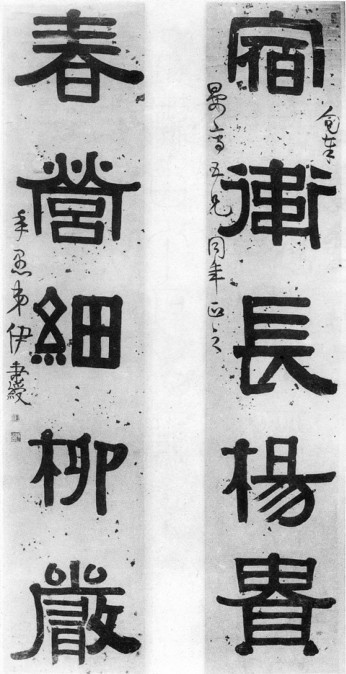 宿衛長楊貴
五兄同年正之
春營細柳嚴
年愚弟伊秉綬